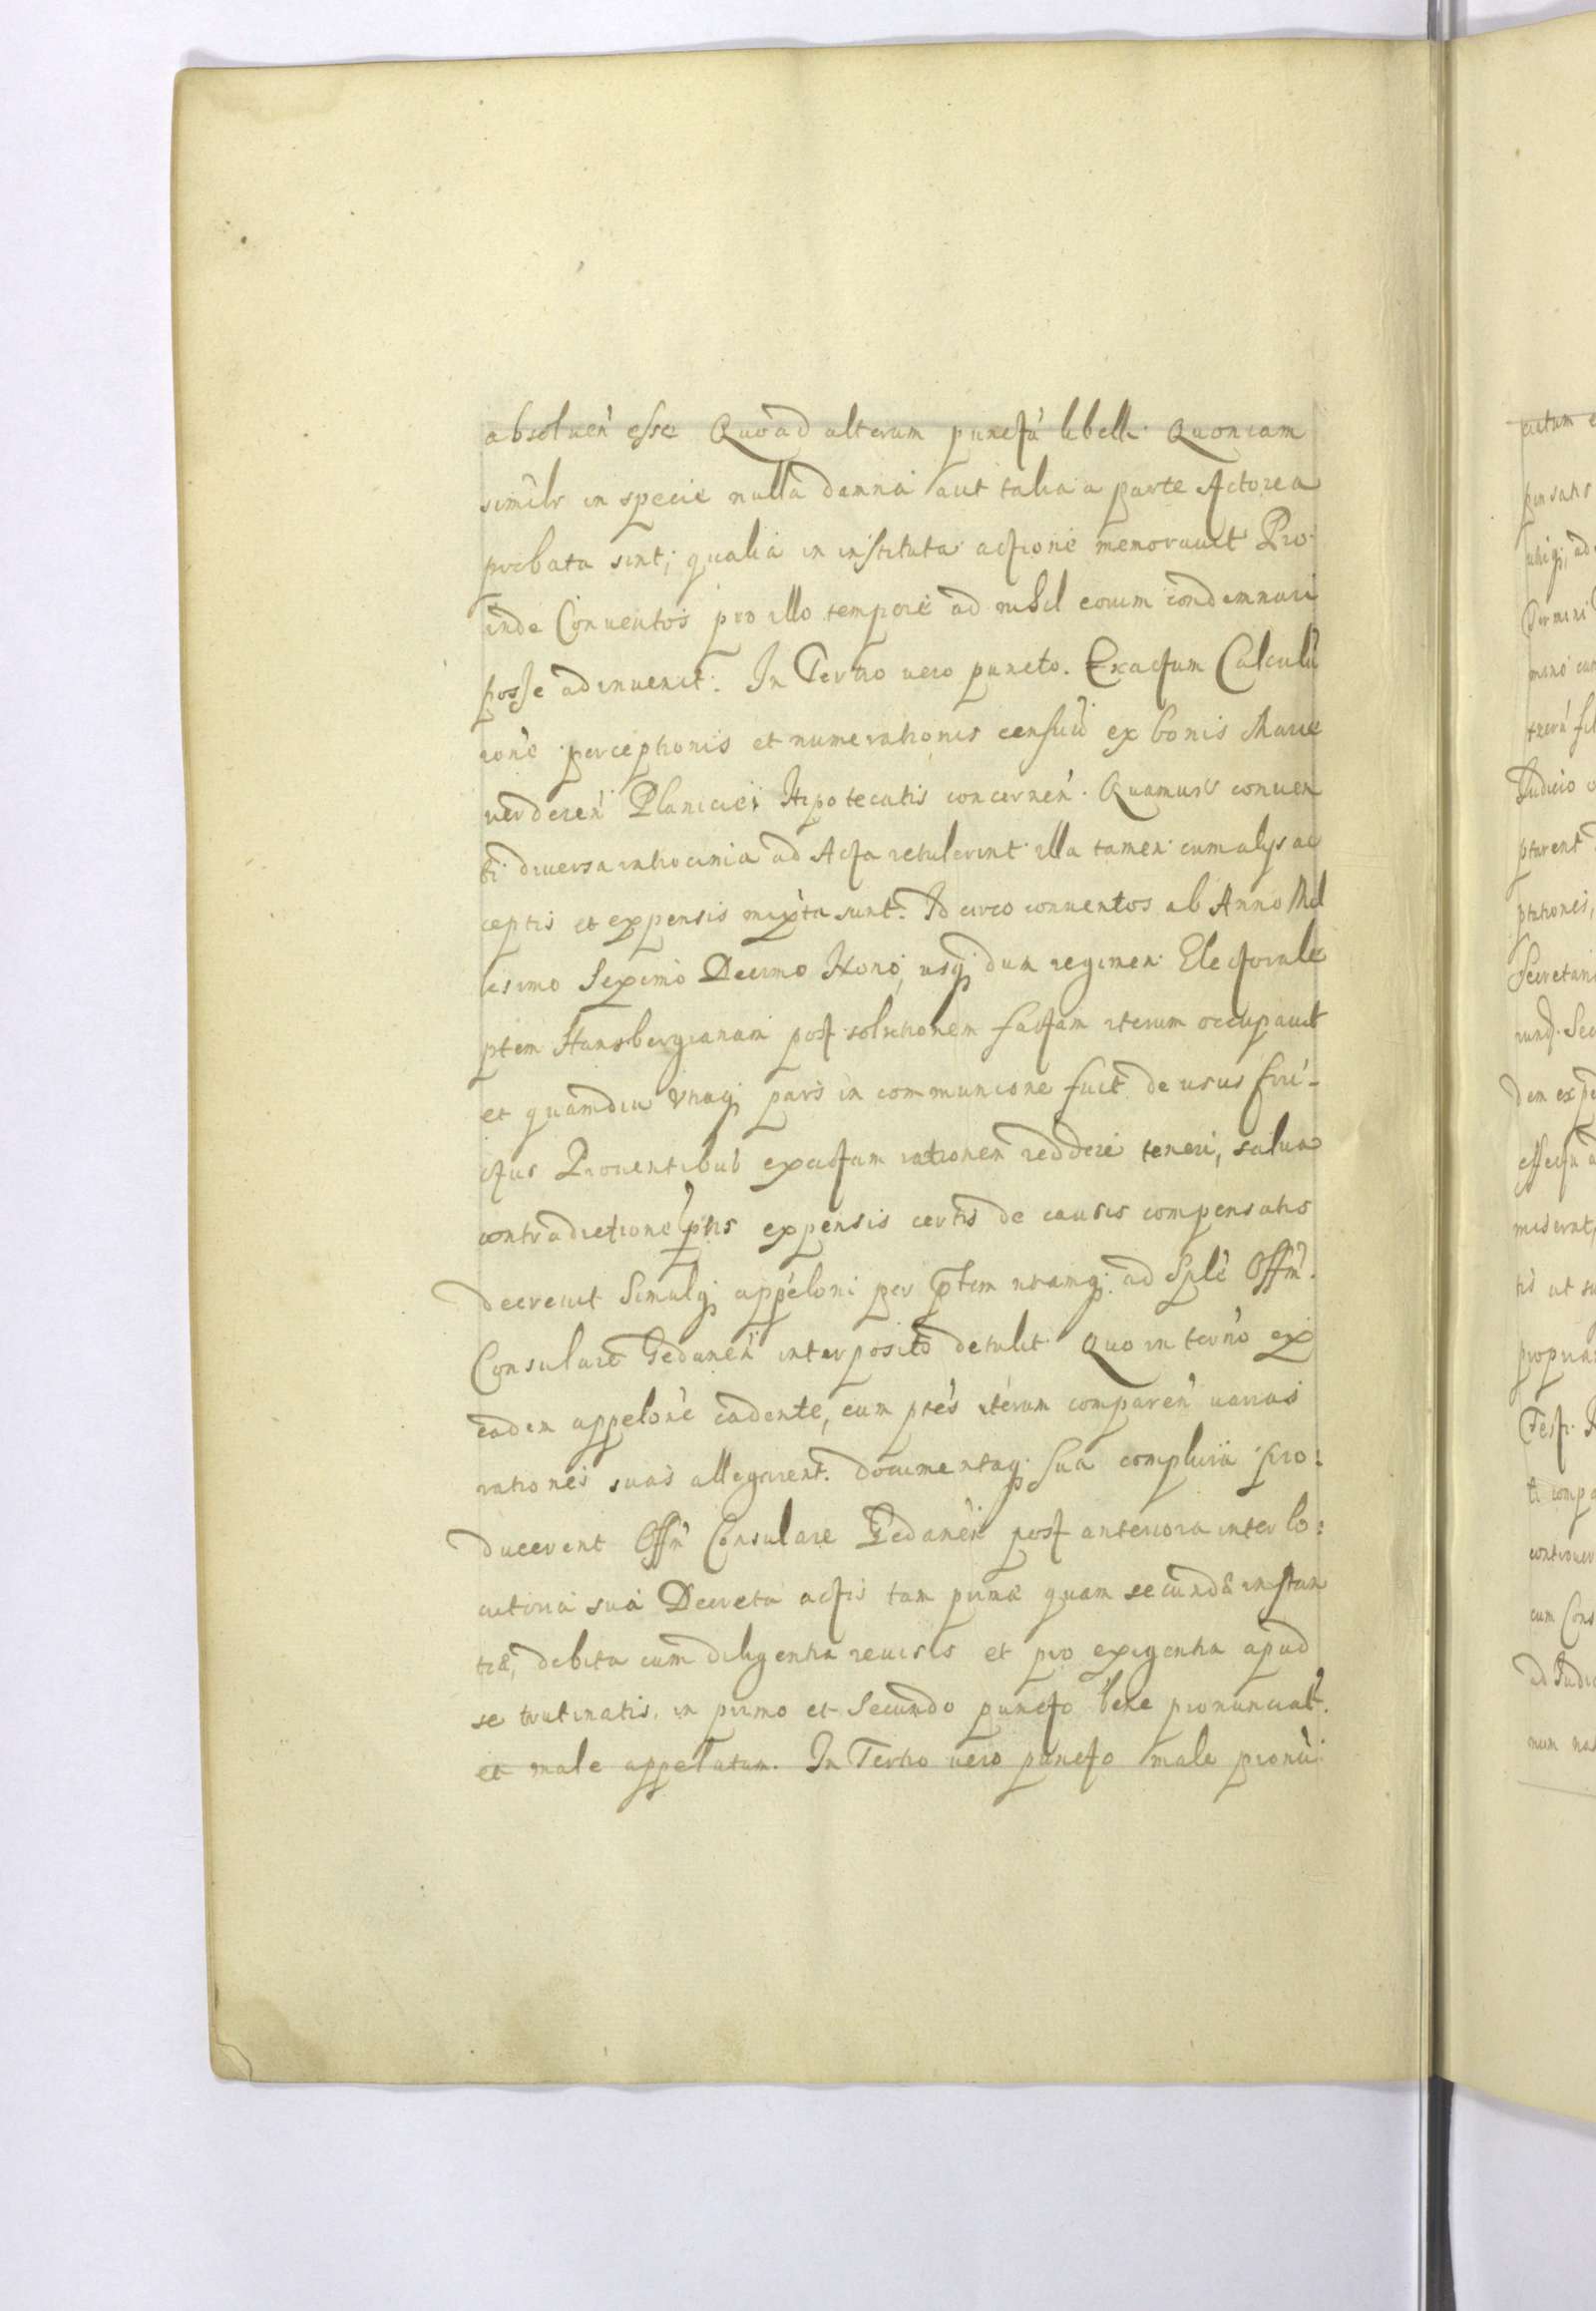 absoluen̄ esse Quoad alterum punctū libelli. Quoniam
similr in specie nulla damna aut talia a parte Actorea
probata sint; qualia in instituta actione memorauit Pro
inde Conuentos pro illo tempore ad nihil eorum condemnari
posse adinuenit. In Tertio vero puncto. Exactum Calculū
rone perceptionis et numerationis censuū ex bonis Marie
uerderen̄ Planiciei Hipotecatis concernen̄. Quamuis conuen
ti diuersa ratiocinia ad Acta retulerint illa tamen cum alys ac
ceptis et expensis mixta sunt. Id circo conuentos ab Anno Mil
lesimo Sexcmo Decimo Nono, usq; dum regimen Electorale
ptem Hansbergianam post solutionem factam iterum occupauit
et quamdiu vtraq; pars in communione fuit de usus fru-
ctus Prouentibus exactam rationem reddere teneri, salua
contradictione ptis expensis certis de causis compensatis
decreuit Simulq; appeloni per ptem utramq; ad Sple Offm̄.
Consulare Gedanen̄ interposito detulit. Quo in termo ex
eadem appelone cadente, cum ptes iterum comparen̄ varias
rationes suas allegarent. documentaq; sua complura pro:
ducerent Offm̄ Consulare Gedanen̄ post anteriora interlo:
cutoria sua Decreta actis tam primæ quam secundæ instan
tiæ, debita cum diligentia reuisis et pro exigentia apud
se trutinatis. in primo et Secundo puncto bene pronunciat̄.
et male appellatum. In Tertio uero puncto male pronū